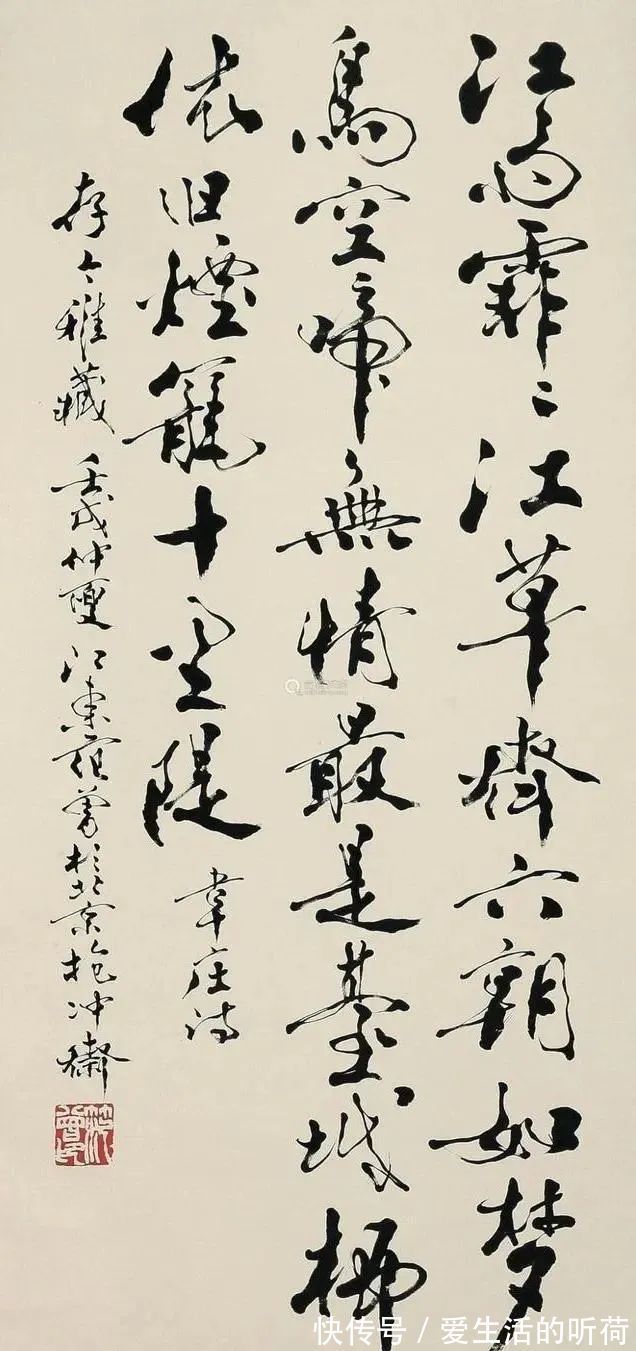 江雨霏二江草齊六朝如梦
鳥空啼無情最是臺城柳
依旧煙籠十里隄
韋庄诗
存々雅藏 壬戌仲夏江東范曾於北京抱冲齋
快传号/爱生活的听荷